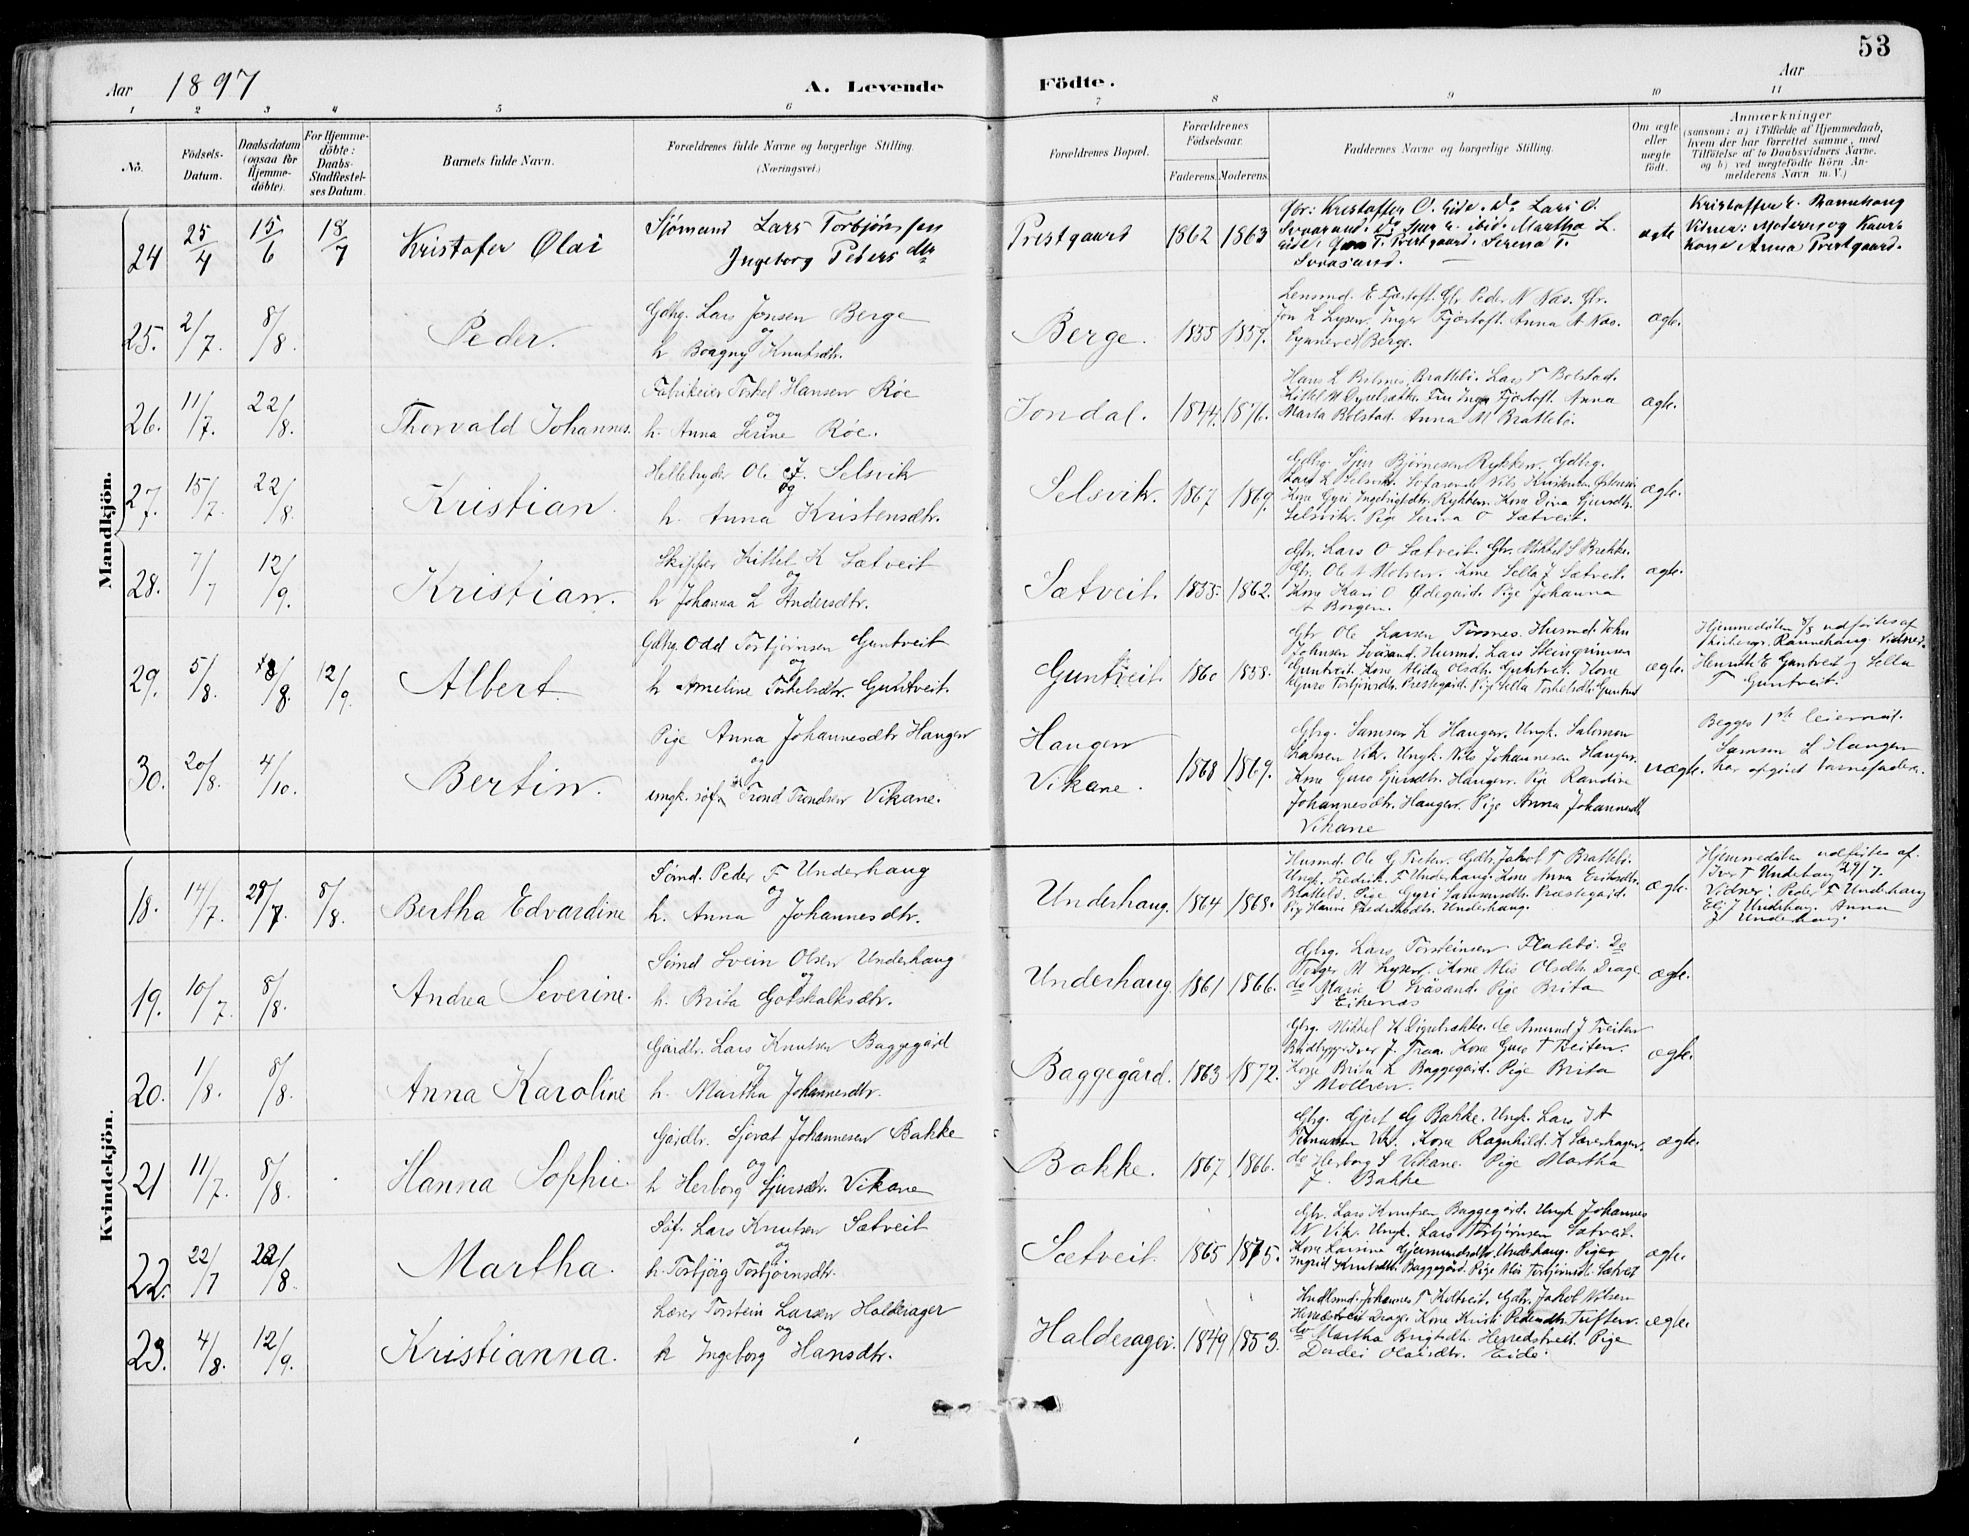 53
Aar 1897
A. Levende Födte.
Aar
1 2 3 4 5 6 7 8 9 10 11
No.
Födsels-Datum.
Daabsdatum (ogsaa for Hjemme-döbte).
For Hjemme-döbte: Daabs-Stadfæstel-ses Datum.
Barnets fulde Navn.
Forældrenes fulde Navne og borgerlige Stilling.
(Næringsvei.)
Forældrenes Bopæl.
Forældrenes Födselsaar.
Faderens. Moderens.
Faddernes Navne og borgerlige Stilling.
Om ægte eller uægte födt.
Anmærkninger
(saasom: a) i Tilfælde af Hjemmedaab,
hvem der har forrettet samme, med
Tilföielse af to Daabsvidners Navne.
og b) ved uegtefödte Börn An-
melderens Navn m. V.)
Mandkjön.
24 25/4 15/6 18/7 Kristofer Olai
Sjømand Lars Torbjønssen
Ingeborg Peders dtr
Prestgaard 1862 1863
Gbr: Kristoffer O. Eide. do Lars O.
Svaasand. do Sjur E. ibid. Martha L.
Eide. T. Prestgaard. Serina T.
Svaasand.
ægte
Kristoffer E. Rannehaug
Vidner: Moderen og Kaar-
kone Anna Prestgaard.
25. 2/7. 8/8. Peder.
Gdbg. Lars Jonsen Berge
og
h. Boagny Knutsdtr.
Berge. 1855 1859.
Lensmd. E Fjærtoft. Gbr Peder N Næs. Gbr.
Jon L Lysen. Inger Fjærtoft. Anna A Næs.
Synneve Berge.
ægte.
26. 11/7. 22/8. Thorvald Johannes.
Fabrikeier Torkel Hansen Røe
og
h. Anna Serine Røe.
Jondal. 1844. 1876.
Hans L Bilnes, Brattebø. Lars T Bolstad.
Inga Fjærtoft. Anna
Marta Bolstad. Anna M Brattebø.
ægte.
27. 15/7. 22/8. Kristian.
Ole J. Selsvik
og
h. Anna Kristensdtr.
Selsvik. 1867 1869.
Gdbg. Sjur Bjørnesen Rykken. Gdbg.
Lars L Selsvik. Søfarende Nils
Kone Gyri Ingebrigtsdtr. Rykken. Kone Dina Sjursdtr.
Selsvik. Pige Serina O Sætveit.
ægte.
28. 7/7 12/9. Kristian.
Skipper Kittel K Sætveit
og
h Johanna L Andersdtr.
Sætveit. 1855. 1862.
Gbr. Lars O Sætveit. Gbr. Mikkel S Brekke.
Gbr. Ole A Molven. Kone Sella J Sætveit.
Kone Kari O Ødegård. Pige Johanna
A Borgen.
ægte.
29. 5/8. 8/8. 12/9. Albert
Gdbg. Odd Torbjørnsen Guntveit
og
h Ameline Torkelsdtr. Guntveit.
Guntveit. 1860 1858.
Gbr Ole Larsen Tornes. Husmd. John
Johnsen Svåsand. Husmd. Lars Steingrimsen
Guntveit. Kone Alida Olsdtr. Guntveit. Kone
Guro Torbjønsdtr. Prestegård. Pige Sella Torkelsdtr. Guntveit
ægte.
Hjemmedåben 8/8 udførtes af
Kirkesgr. Rannehaug. Vidner.
Henrik E Guntveit og Sella
T Guntveit.
30. 20/8. 4/10. Bertin.
Pige Anna Johannesdtr Haugen
og
ungk. søf. Trond Trondsen Vikane.
Haugen
Vikane. 1868 1869.
Gbrg. Samson L Haugen. Ungk. Salomon
Larsen Vik. Ungk. Nils Johannesen Haugen.
Kone Guro Sjursdtr. Haugen. Pige Randine
Johannesdtr. Haugen. Pige Anna Johannesdt.
Vikane
uægte.
Begges 1ste leiermål.
Samson L Haugen
har opgivet barnefaderen.
Kvindekjön.
18. 14/7. 29/7 8/8. Bertha Edvardine
Sømd. Peder F Underhaug
og
h. Anna Johannesdtr.
Underhaug. 1864 1868.
Husmd. Ole G Treten. Gdbr. Jakob T Brattebø.
Ungk. Fredrik F Underhaug. Kone Anna Eriksdtr.
Brattebø. Pige Gyri Samsonsdtr. Præstegård.
Pige Hanna Frederiksdtr. Underhaug.
ægte.
Hjemmedåben udførtes af.
Iver T Underhaug 29/7.
Vidner: Peder F Underhaug
Eli J Underhaug. Anna
J Underhaug.
19. 10/7. 8/8. Andrea Severine.
Sømd Svein Olsen Underhaug
og
h. Brita Gotskalksdtr.
Underhaug. 1861 1866.
Gbrg. Lars Torsteinsen Flatebø. De
Torger M Lysen. Kone Alis Olsdtr. Drage.
de Marie O Svåsand. Pige Brita
S Eikenæs
ægte.
20. 1/8. 8/8. Anna Karoline
Gårdbr. Lars Knutsen Baggegård
og
h. Martha Johannesdtr.
Baggegård. 1863 1872.
Gbrg. Mikkel K Digrebrække. de Amund J Treiten
Baadbygger Iver J. Traa. Kone Guro T Treiten.
Kone Brita L Baggegård. Pige Brita
S Molven.
ægte.
21 11/7. 8/8. Hanna Sophie.
Gårdbr. Sjovat Johannesen Bakke
og
h Herborg Sjursdtr. Vikane
Bakke. 1867 1866.
Gbrg. Gjert G Bakke. Ungk. Lars I A
Vik. Kone Ragnhild K Saverhagen.
de Herborg S Vikane. Pige Martha
J. Bakke
ægte.
22. 22/7 22/8. Martha.
Søf. Lars Knutsen Sætveit
og
h. Torbjørg Torbjørnsdtr.
Sætveit. 1865 1875.
Gbr. Lars Knutsen Baggegård. Ungk Johannes
N Vik. Ungk. Lars Torbjørnsen Sætveit.
Kone Larsine Gjermundsdtr Underhaug. Piger
Ingrid Knutsdtr. Baggegård. Pige Alis Torbjørnsd. Sætveit
ægte.
23. 4/8. 12/9. Kristianna.
Lærer Torstein Larsen Halderager
og
h Ingeborg Hansdtr.
Halderager. 1849 1853.
Johannes T Kiltveit. Gdbr. Jakob Nilsen
Herredstveit Drage. Kone Kristi Pedersdtr Tuften.
do Martha Brigtsdtr. Herredstveit. Pige
Dordei Olaisdtr. Eide.
ægte.